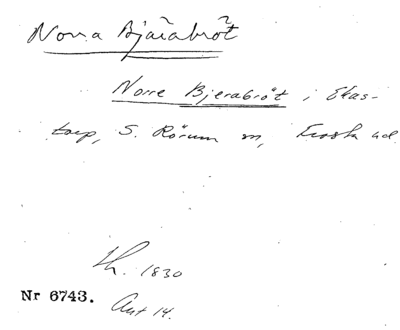 Norra Bjärabröt
Norre Bjerabröt i Ekas-
torp, S. Rörum sn, Frosta hd
Lh. 1830
Nr 6743.
Akt 14.